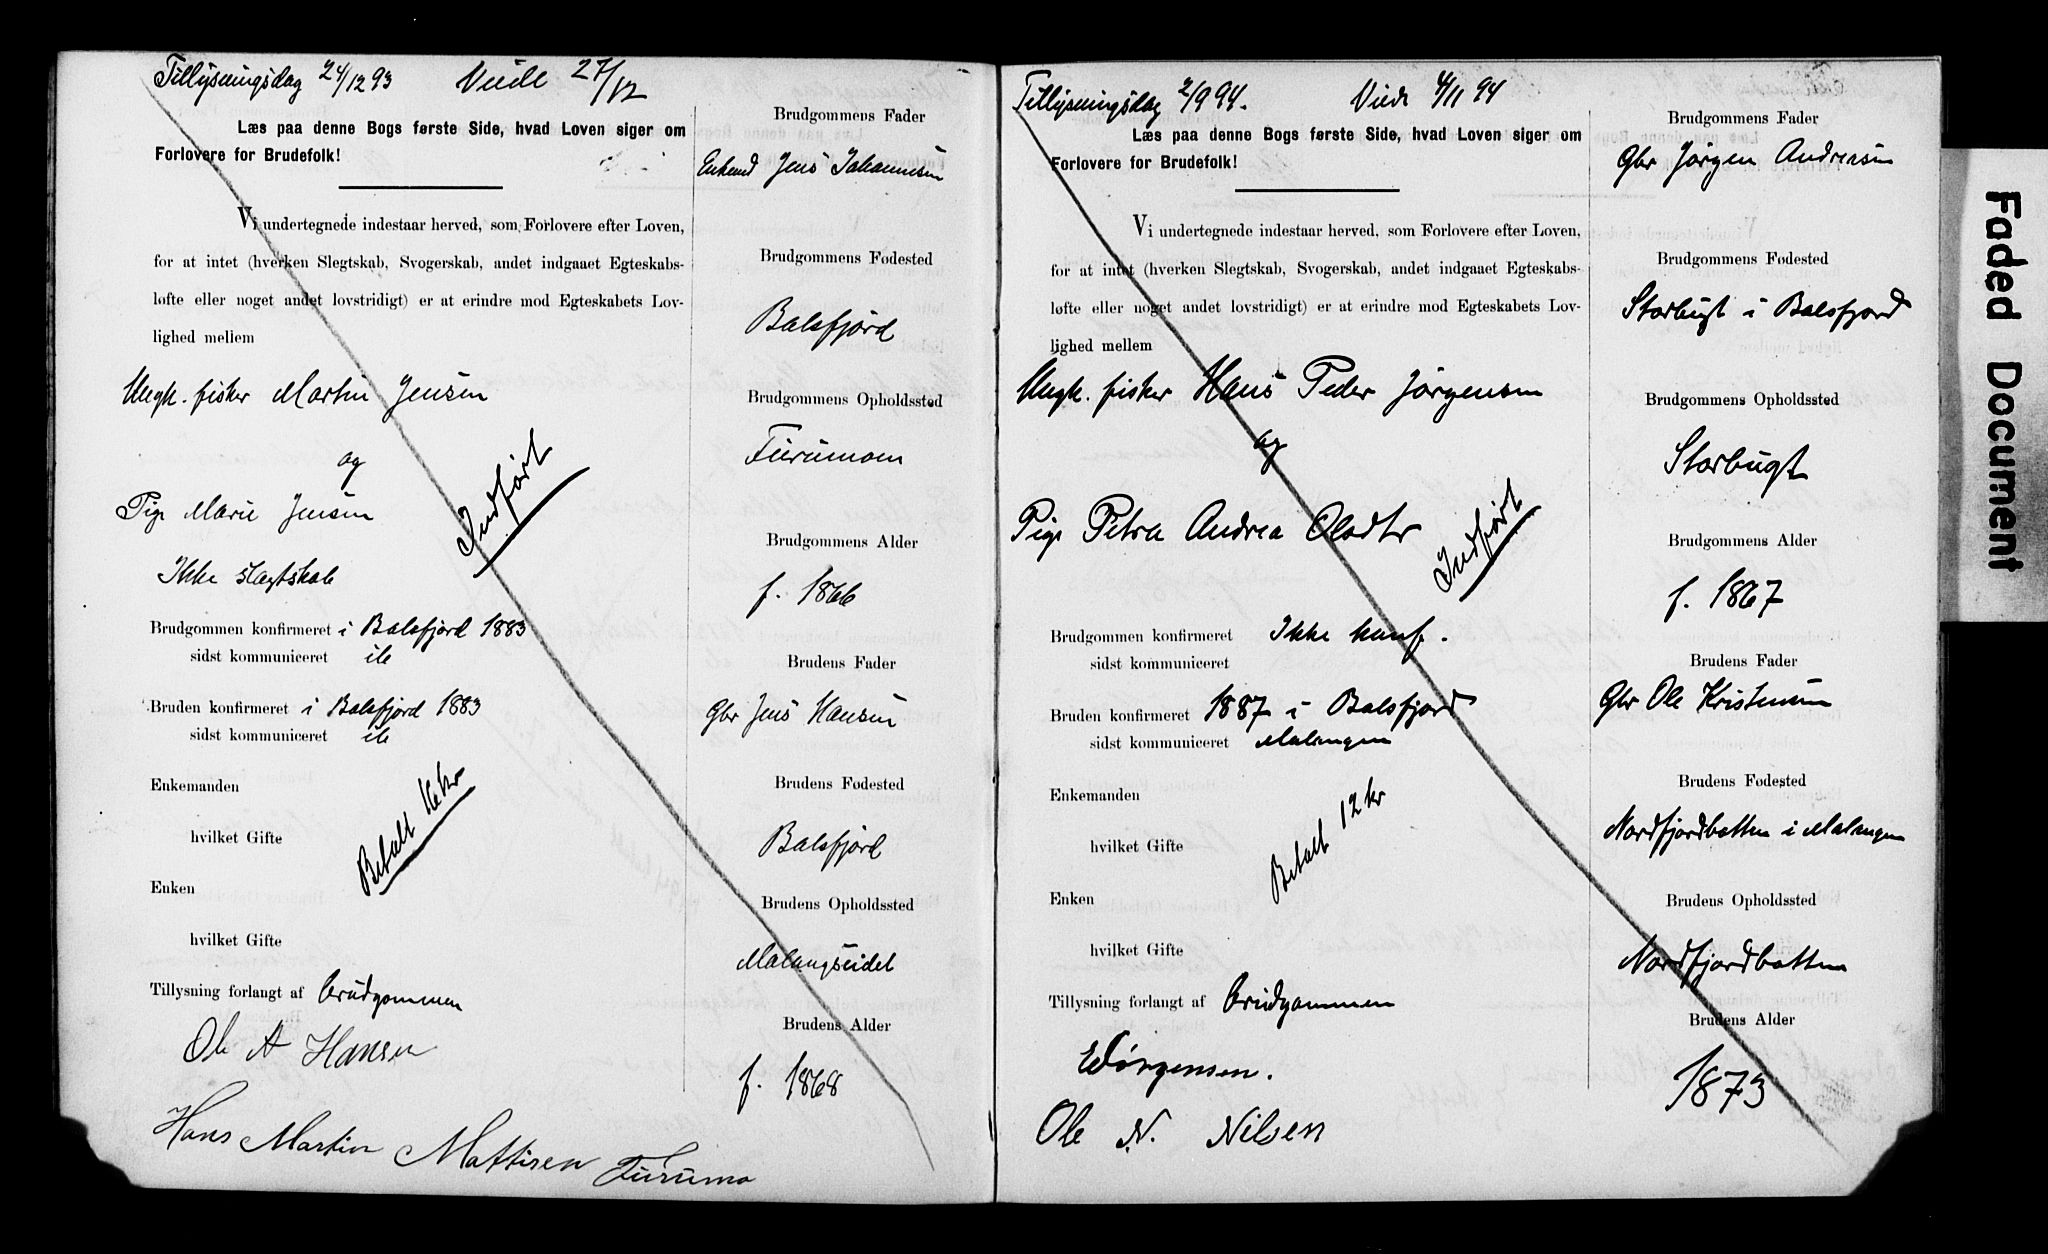 Tillysningsdag 24/12 93 Viede 27/12
Læs paa denne Bogs første Side, hvad Loven siger om
Forlovere for Brudefolk!
Vi undertegnede indestaar herved, som Forlovere efter Loven,
for at intet (hverken Slegtskab, Svogerskab, andet indgaaet Egteskabs-
løfte eller noget andet lovstridigt) er at erindre mod Egteskabets Lov-
lighed mellem
Ungk. fisker Martin Jensen
og
Pige Marie Jensen
Indført
Ikke slægtskab
Brudgommen konfirmeret i Balsfjord 1883
sidst kommuniceret
Bruden konfirmeret i Balsfjord 1883
sidst kommuniceret
Enkemanden
hvilket Gifte
Betalt
Enken
hvilket Gifte
Tillysning forlangt af Brudgommen
Ole A Hansen
Hans Martin Mattisen Furumo
Brudgommens Fader
Jens Johannesen
Brudgommens Fødested
Balsfjord
Brudgommens Opholdssted
Furumoen
Brudgommens Alder
f. 1866
Brudens Fader
Gbr Jens Hansen
Brudens Fødested
Balsfjord
Brudens Opholdssted
Malangseidet
Brudens Alder
f. 1868
Tillysningsdag 2/9 94. Viede 4/11 94
Læs paa denne Bogs første Side, hvad Loven siger om
Forlovere for Brudefolk!
Vi undertegnede indestaar herved, som Forlovere efter Loven,
for at intet (hverken Slegtskab, Svogerskab, andet indgaaet Egteskabs-
løfte eller noget andet lovstridigt) er at erindre mod Egteskabets Lov-
lighed mellem
Ungk. fisker Hans Peder Jørgensen
og
Pige Petra Andrea Olsdtr
Indført
Brudgommen konfirmeret Ikke konf.
sidst kommuniceret
Bruden konfirmeret 1887 i Balsfjord
sidst kommuniceret Malangen
Enkemanden
hvilket Gifte
Betalt 12 kr
Enken
hvilket Gifte
Tillysning forlangt af Brudgommen
EJørgensen.
Ole N. Nilsen
Brudgommens Fader
Gbr Jørgen Andreasen
Brudgommens Fødested
Storbugt i Balsfjord
Brudgommens Opholdssted
Storbugt
Brudgommens Alder
f. 1867
Brudens Fader
Gbr Ole Kristensen
Brudens Fødested
Nordfjordbotten i Malangen
Brudens Opholdssted
Nordfjordbotten
Brudens Alder
1873
Faded Document